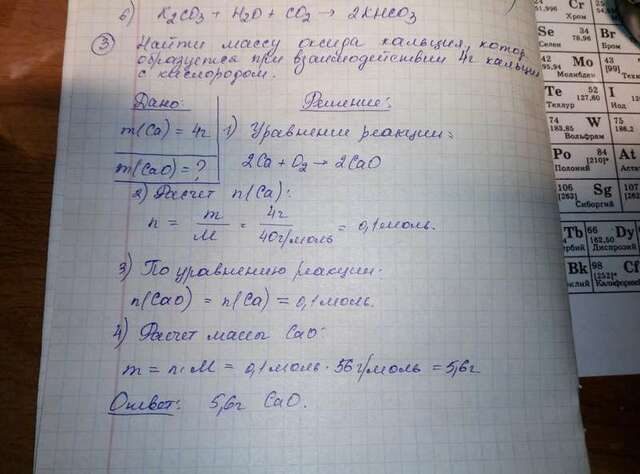 б) K₂CO₃ + H₂O + CO₂ → 2KHCO₃
③ Найти массу оксида кальция, котор
образуется при взаимодействии 4г кальция
с кислородом.
Дано:
m(Ca) = 4г
m(CaO) = ?
Решение:
1) Уравнение реакции:
2Ca + O₂ → 2CaO
2) Расчет n(Ca):
n = m/M = 4г/40г/моль = 0,1моль.
3) По уравнению реакции:
n(CaO) = n(Ca) = 0,1моль.
4) Расчет массы CaO:
m = n·M = 0,1моль · 56г/моль = 5,6г
Ответ: 5,6г CaO.
51,996 Cr
Хром
Se 34
78,96
Селен
35
Br
Бром
42 Mo
95,94
Молибден
43
[99]
Te 52
127,60
Теллур
I
Иод
74 W
183,85
Вольфрам
75
186,2
Po 84
[210]*
Полоний
At
Аста
106 Sg
[263]
Сиборгий
107
[262]
Tb
66 Dy
162,50
Диспрозий
Bk
98 Cf
[252]*
клий